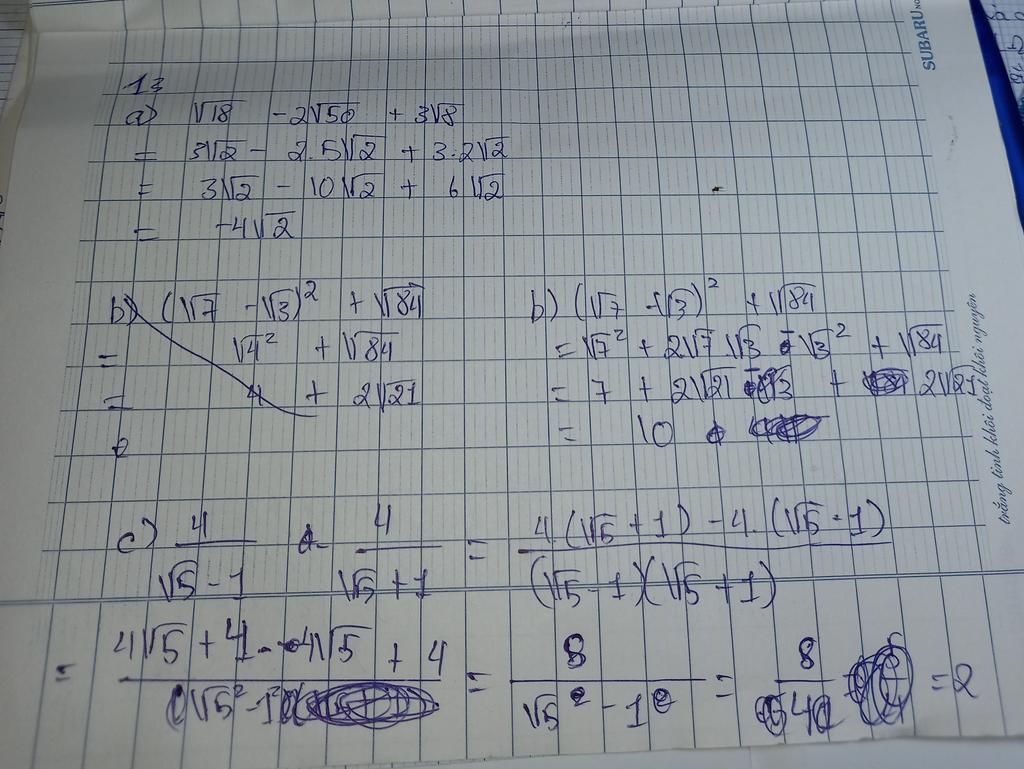 SUBARU
13
a) √18 - 2√50 + 3√8
= 3√2 - 2.5√2 + 3.2√2
= 3√2 - 10√2 + 6√2
= -4√2
b) (√7 - √3)² + √84
= √4² + √84
= 4 + 2√21
=
b) (√7 - √3)² + √84
= √7² + 2√7 √3 - √3² + √84
= 7 + 2√21 3 + 2√21
= 10
c) 4/(√5 - 1) - 4/(√5 + 1) = (4(√5 + 1) - 4.(√5 - 1))/((√5 - 1)(√5 + 1))
= (4√5 + 4 - 4√5 + 4)/(√5² - 1²) = 8/(√5² - 1²) = 8/4 = 2
trắng tinh khôi đoạt khôi nguyên